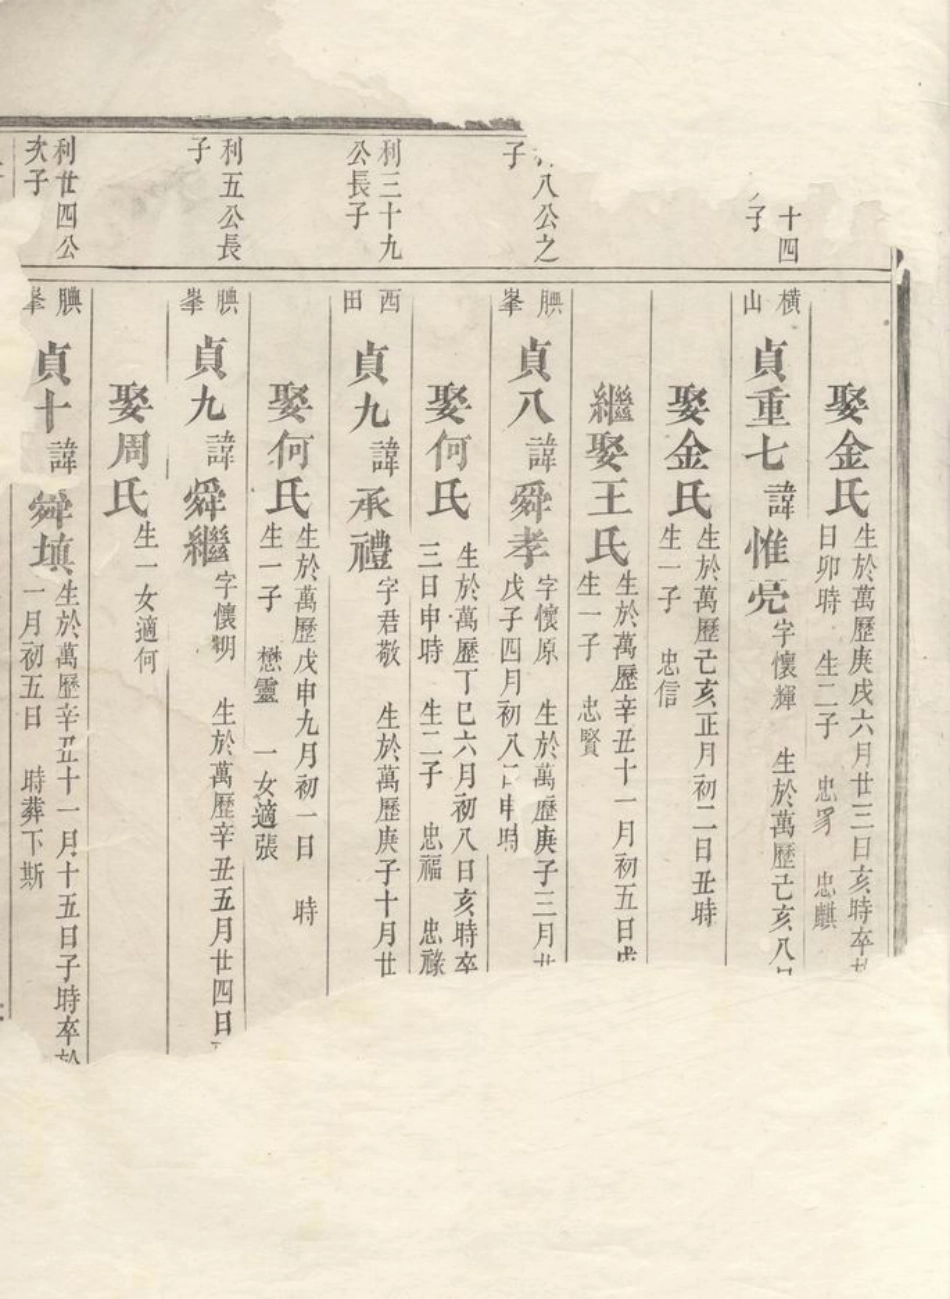 娶金氏
生於萬歷庚戌六月廿三日亥時卒
日卯時 生二子 忠 忠麒
十四
子
橫
山
貞重七諱惟亮字懷輝 生於萬歷己亥八
娶金氏
生於萬歷己亥正月初二日丑時
生一子 忠信
繼娶王氏
生於萬歷辛丑十一月初五日
生一子 忠賢
八公之
子
腆
峯
貞八諱舜孝
字懷原 生於萬歷庚子三月廿
戊子四月初八日申時
娶何氏
生於萬歷丁巳六月初八日亥時卒
三日申時 生二子 忠福 忠祿
利三十九
公長子
西
田
貞九諱承禮字君敬 生於萬歷庚子十月廿
娶何氏
生於萬歷戊申九月初一日 時
生一子 懋靈 一女適張
利五公長
子
腆
峯
貞九諱舜繼字懷明 生於萬歷辛丑五月廿四日
娶周氏
生一女適何
利廿四公
次子
腆
峯
貞十諱舜填
生於萬歷辛丑十一月十五日子時卒於
一月初五日 時葬下斯